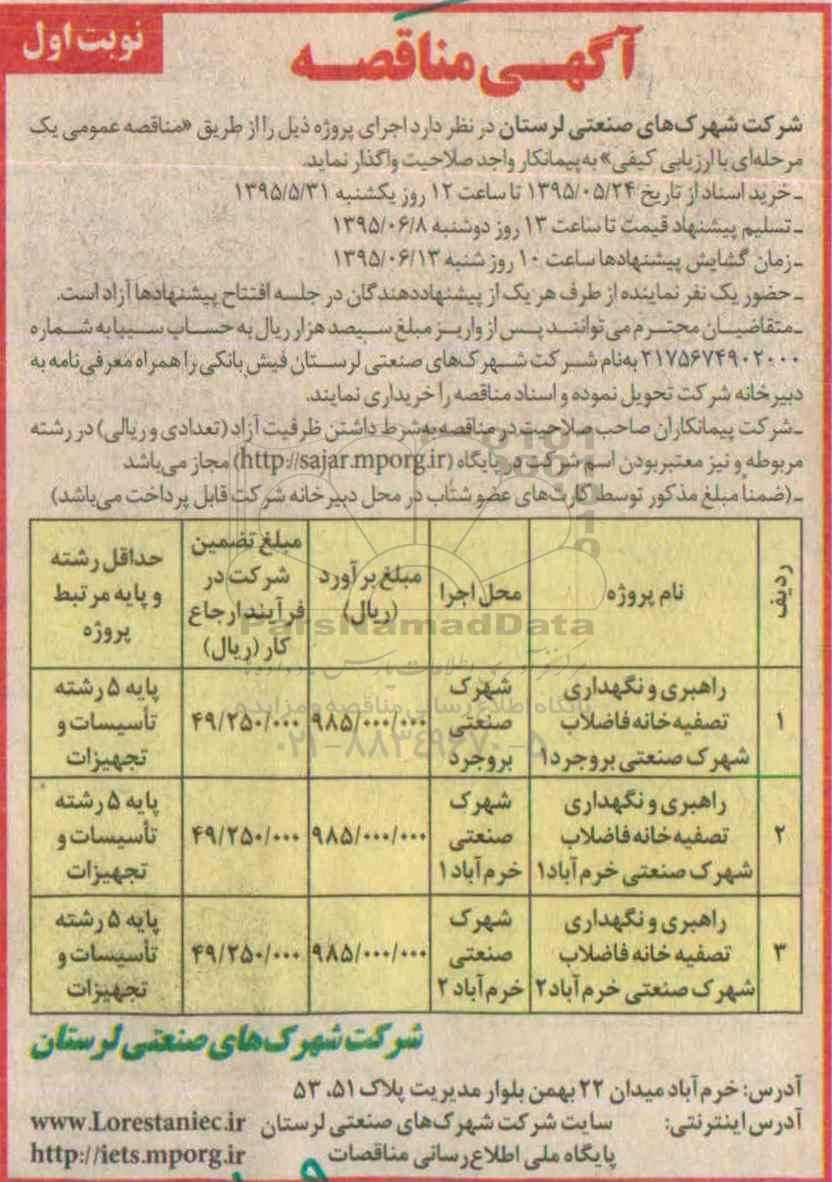 نوبت اول
آگهی مناقصه
شرکت شهرک‌های صنعتی لرستان در نظر دارد اجرای پروژه ذیل را از طریق «مناقصه عمومی یک
مرحله‌ای با ارزیابی کیفی» به پیمانکار واجد صلاحیت واگذار نماید.
ـ خرید اسناد از تاریخ ۱۳۹۵/۰۵/۲۴ تا ساعت ۱۲ روز یکشنبه ۱۳۹۵/۵/۳۱
ـ تسلیم پیشنهاد قیمت تا ساعت ۱۳ روز دوشنبه ۱۳۹۵/۰۶/۸
ـ زمان گشایش پیشنهادها ساعت ۱۰ روز شنبه ۱۳۹۵/۰۶/۱۳
ـ حضور یک نفر نماینده از طرف هر یک از پیشنهاددهندگان در جلسه افتتاح پیشنهادها آزاد است.
ـ متقاضیان محترم می‌توانند پس از واریز مبلغ سیصد هزار ریال به حساب سیبا به شماره
۲۱۷۵۶۷۴۹۰۲۰۰۰ به‌نام شرکت شهرک‌های صنعتی لرستان فیش بانکی را همراه معرفی‌نامه به
دبیرخانه شرکت تحویل نموده و اسناد مناقصه را خریداری نمایند.
ـ شرکت پیمانکاران صاحب صلاحیت در مناقصه به‌شرط داشتن ظرفیت آزاد (تعدادی و ریالی) در رشته
مربوطه و نیز معتبربودن اسم شرکت در پایگاه (http://sajar.mporg.ir) مجاز می‌باشد
ـ (ضمناً مبلغ مذکور توسط کارت‌های عضو شتاب در محل دبیرخانه شرکت قابل پرداخت می‌باشد)
ردیف
نام پروژه
محل اجرا
مبلغ برآورد
(ریال)
مبلغ تضمین
شرکت در
فرآیند ارجاع
کار (ریال)
حداقل رشته
و پایه مرتبط
پروژه
۱
راهبری و نگهداری
تصفیه خانه فاضلاب
شهرک صنعتی بروجرد۱
شهرک
صنعتی
بروجرد
۹۸۵/۰۰۰/۰۰۰
۴۹/۲۵۰/۰۰۰
پایه ۵ رشته
تأسیسات و
تجهیزات
۲
راهبری و نگهداری
تصفیه خانه فاضلاب
شهرک صنعتی خرم‌آباد۱
شهرک
صنعتی
خرم‌آباد۱
۹۸۵/۰۰۰/۰۰۰
۴۹/۲۵۰/۰۰۰
پایه ۵ رشته
تأسیسات و
تجهیزات
۳
راهبری و نگهداری
تصفیه خانه فاضلاب
شهرک صنعتی خرم‌آباد۲
شهرک
صنعتی
خرم‌آباد ۲
۹۸۵/۰۰۰/۰۰۰
۴۹/۲۵۰/۰۰۰
پایه ۵ رشته
تأسیسات و
تجهیزات
ParsNamadData
پایگاه اطلاع رسانی مناقصه و مزایده
۰۲۱-۸۸۳۴۹۶۷۰-۵
شرکت شهرک‌های صنعتی لرستان
آدرس: خرم‌آباد میدان ۲۲ بهمن بلوار مدیریت پلاک ۵۱، ۵۳
آدرس اینترنتی: سایت شرکت شهرک‌های صنعتی لرستان www.Lorestaniec.ir
پایگاه ملی اطلاع‌رسانی مناقصات http://iets.mporg.ir